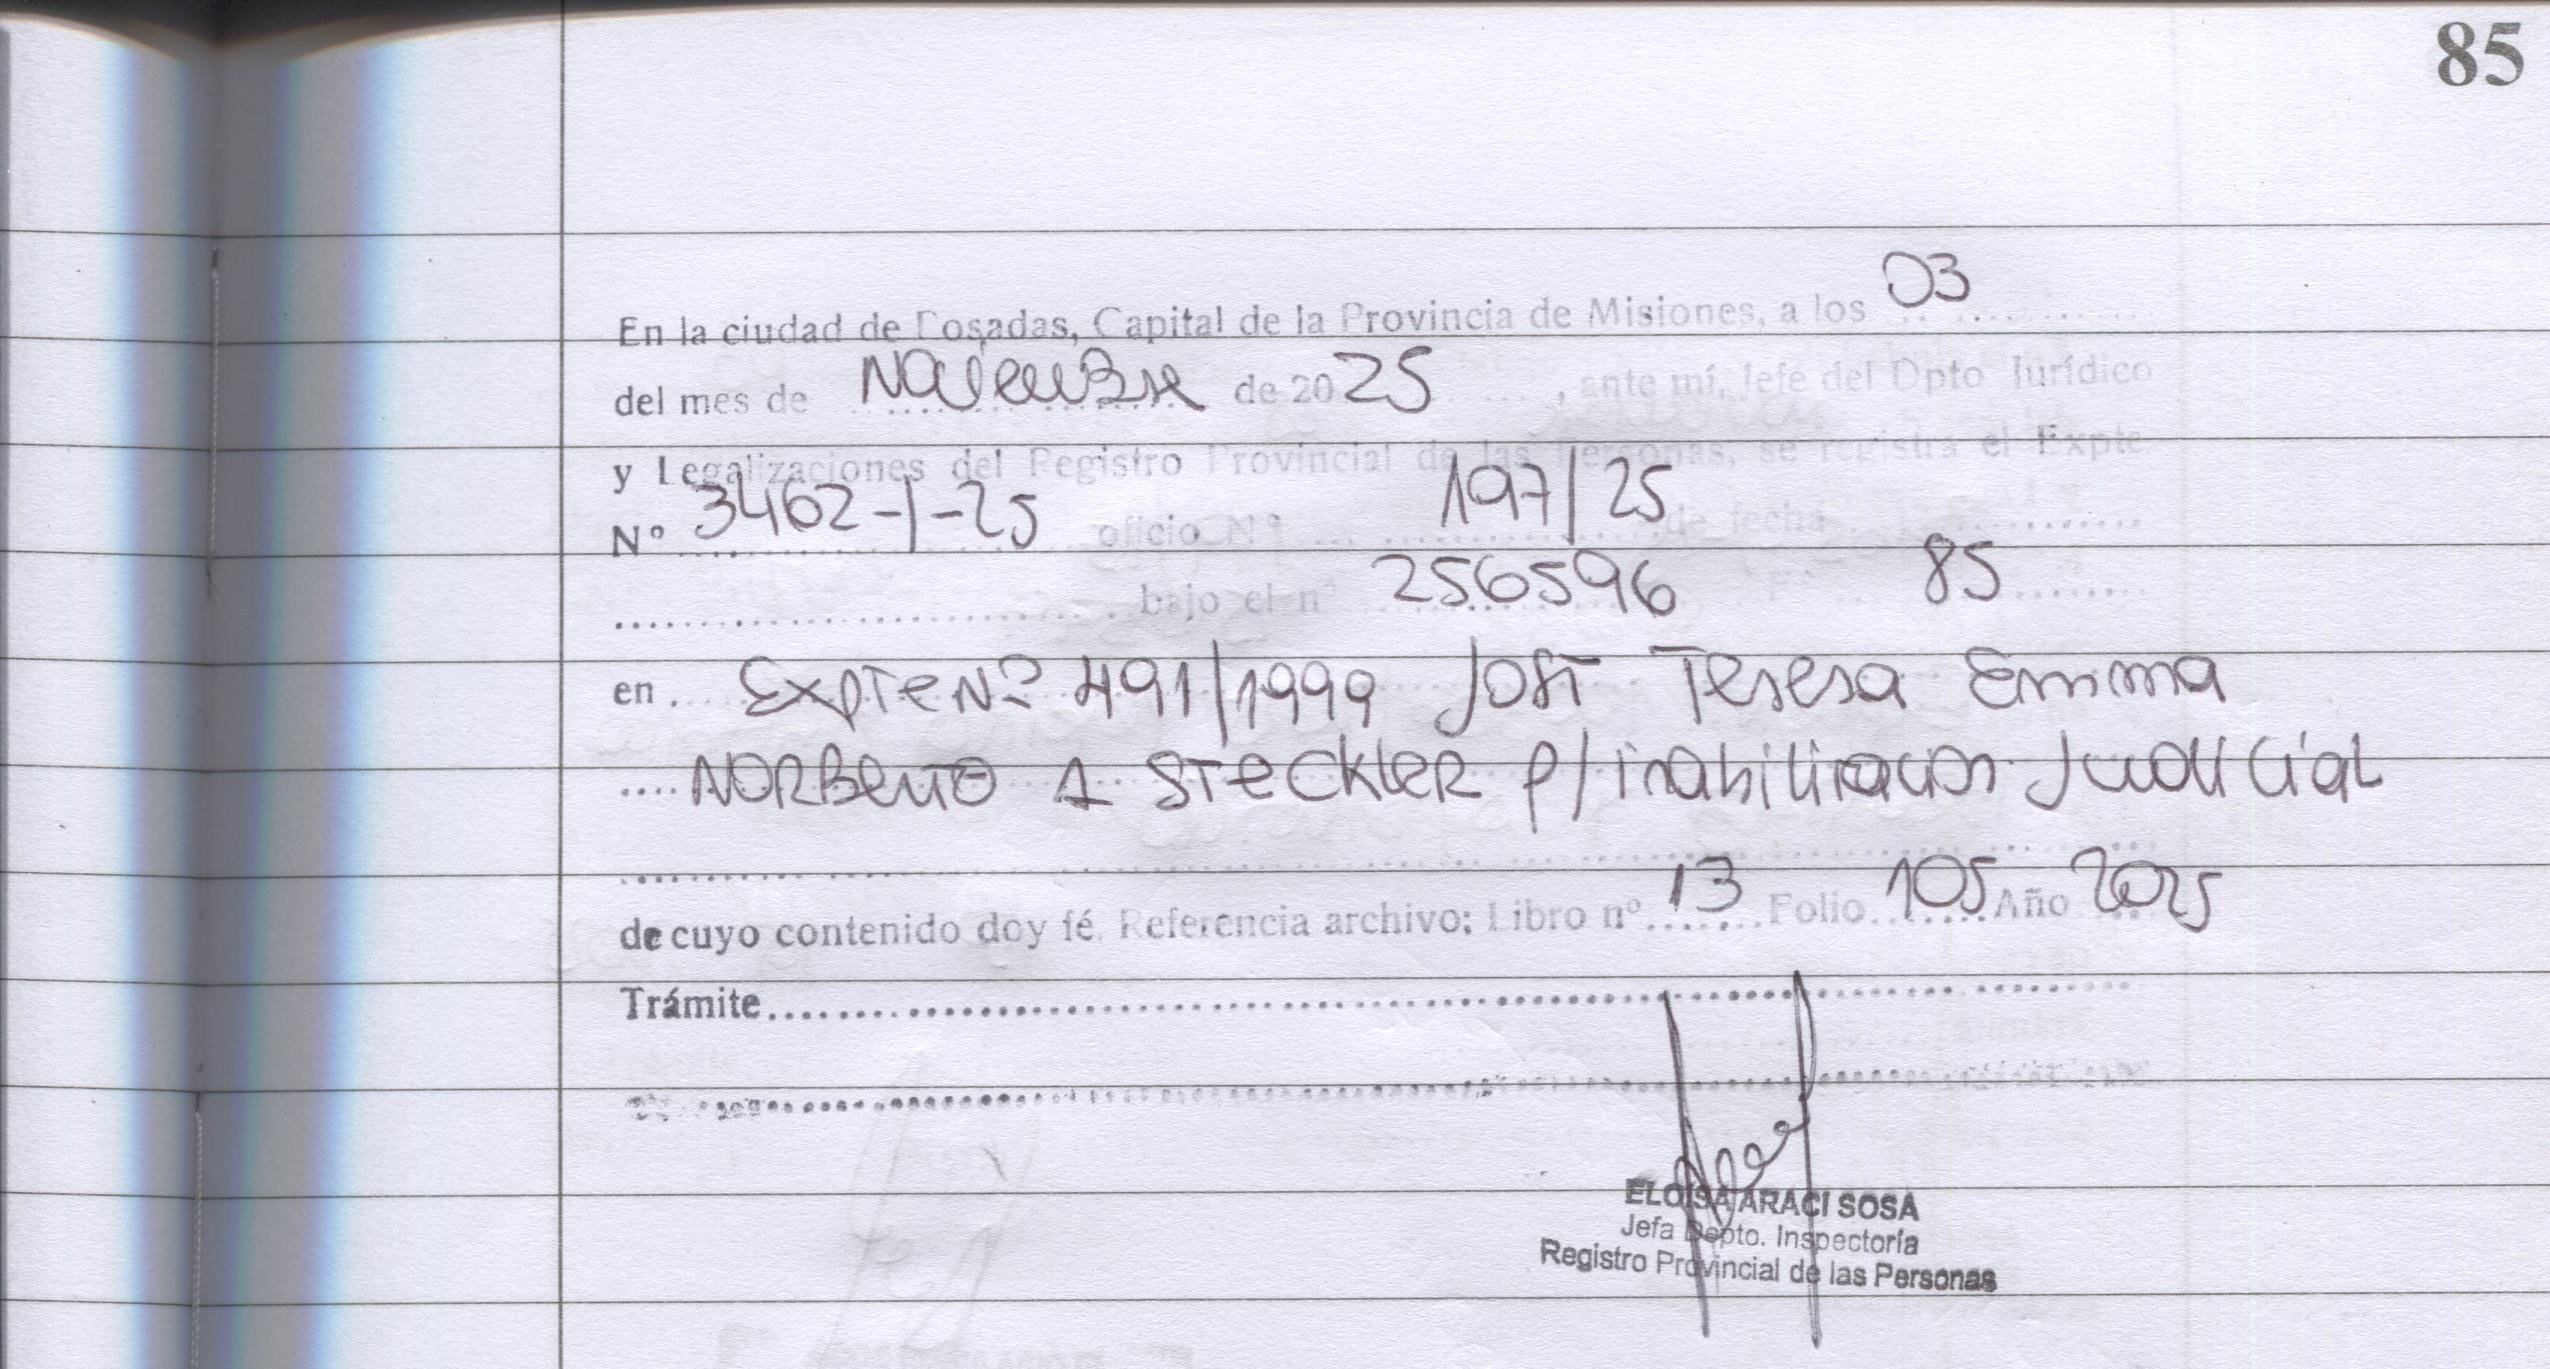 85
En la ciudad de Posadas, Capital de la Provincia de Misiones, a los 03
del mes de Noviembre de 2025, ante mí, Jefe del Dpto Jurídico
y Legalizaciones del Registro Provincial de las Personas, se registra el Expte
Nº 3462-1-25 oficio Nº 197/25 de fecha
bajo el nº 256596 Fº 85
en Expte Nº 491/1999 Jost Teresa Emma
NORBERTO A STECKLER p/ inabilitacion Judicial
de cuyo contenido doy fé. Referencia archivo: Libro nº 13 Folio 105 Año 2025
Trámite
ELOISA ARACI SOSA
Jefa Depto. Inspectoría
Registro Provincial de las Personas